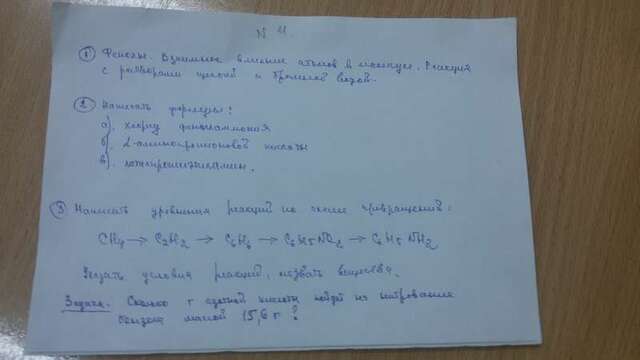 N 11.
① Фенолы. Взаимное влияние атомов в молекуле. Реакция
с растворами щелочей и бромной водой.
② Написать формулы:
а). хлорид фениламмония
б). 2-аминопропионовой кислоты
в).
③ Написать уравнения реакций по схеме превращений:
CH4 → C2H2 → C6H6 → C6H5NO2 → C6H5NH2
Указать условия реакций, назвать вещества.
Задача. Сколько г азотной кислоты пойдёт на нитрование
бензола массой 15,6 г?